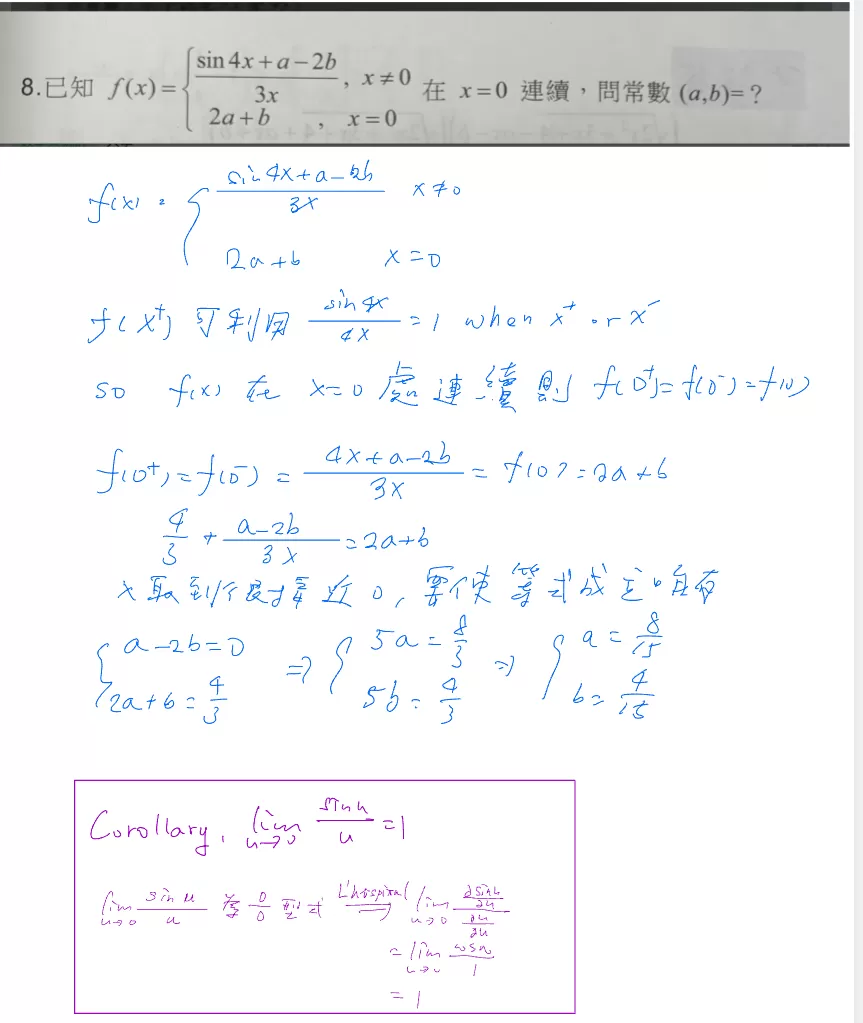 8.已知 f(x)= { (sin4x+a−2b)/(3x) , x≠0 在 x=0 連續，問常數 (a,b)=?
2a+b , x=0
f(x) = { (sin 4x+a−2b)/(3x) x≠0
2a+b x=0
f(x⁺) 可利用 (sin 4x)/(4x) = 1 when x⁺ or x⁻
so f(x) 在 x=0 處連續則 f(0⁺)=f(0⁻)=f(0)
f(0⁺)=f(0⁻) = (4x+a−2b)/(3x) = f(0) = 2a+b
4/3 + (a−2b)/(3x) = 2a+b
x 取到很接近 0, 要使等式成立唯有
{ a−2b=0 ⇒ { 5a = 8/3 ⇒ { a = 8/15
2a+b = 4/3 5b = 4/3 b = 4/15
Corollary, lim u→0 (sin u)/u = 1
lim u→0 (sin u)/u 為 0/0 型式 L'hospital ⇒ lim u→0 (∂sin u/∂u)/(∂u/∂u)
= lim u→0 (cos u)/1
= 1